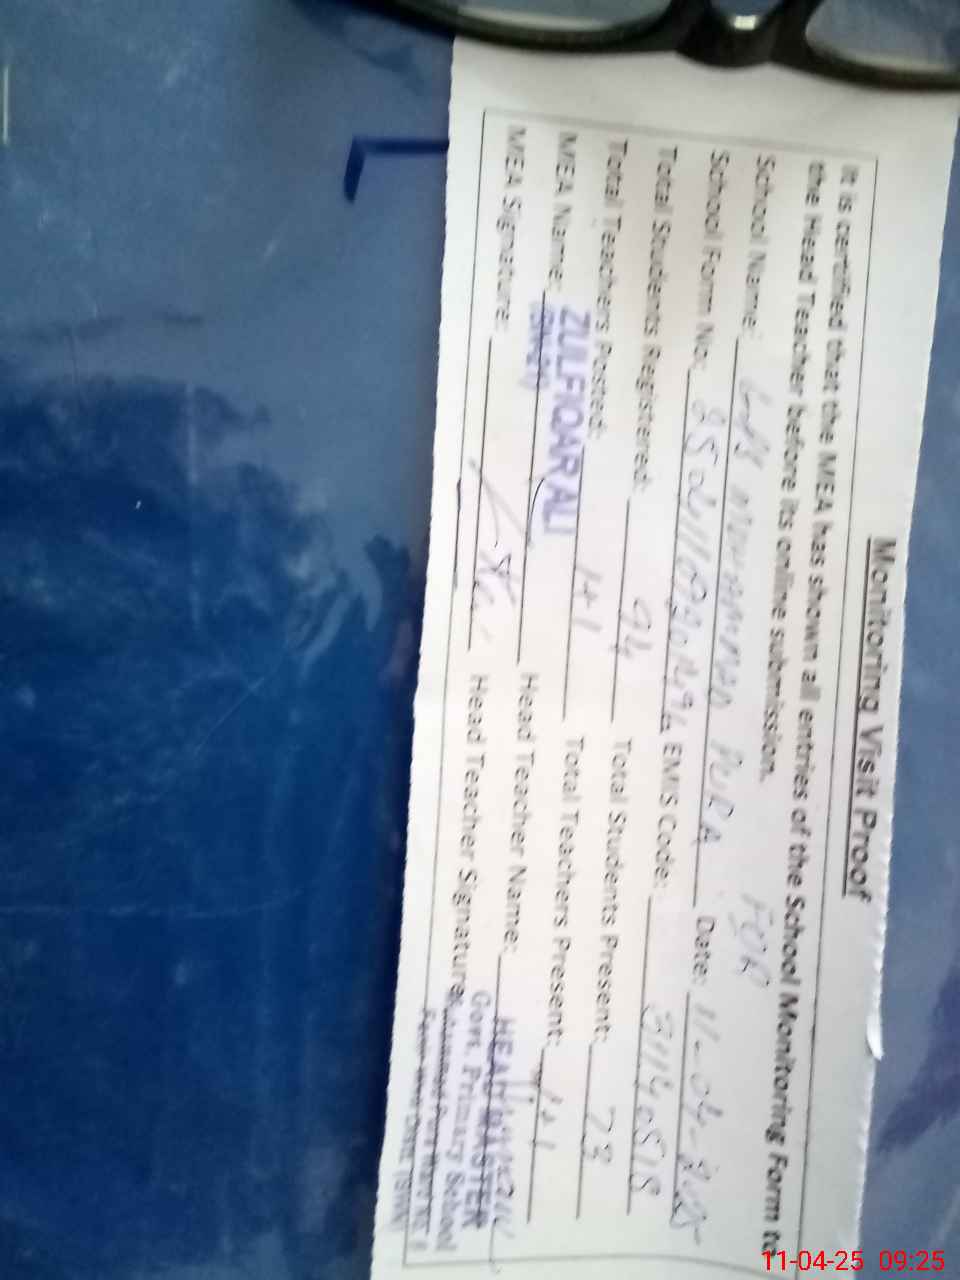 Monitoring Visit Proof
It is certified that the MEA has shown all entries of the School Monitoring Form to
the Head Teacher before its online submission.
School Name: MUHAMMAD PURA FOR
School Form No: Date: 11-04-2025
Total Students Registered: 94 EMIS Code:
Total Teachers Posted: 1+1 Total Students Present: 73
MEA Name: ZULFIQAR ALI Total Teachers Present: 1+1
Head Teacher Name: HEAD MASTER
MEA Signature: Head Teacher Signature: Govt. Primary School
11-04-25 09:25